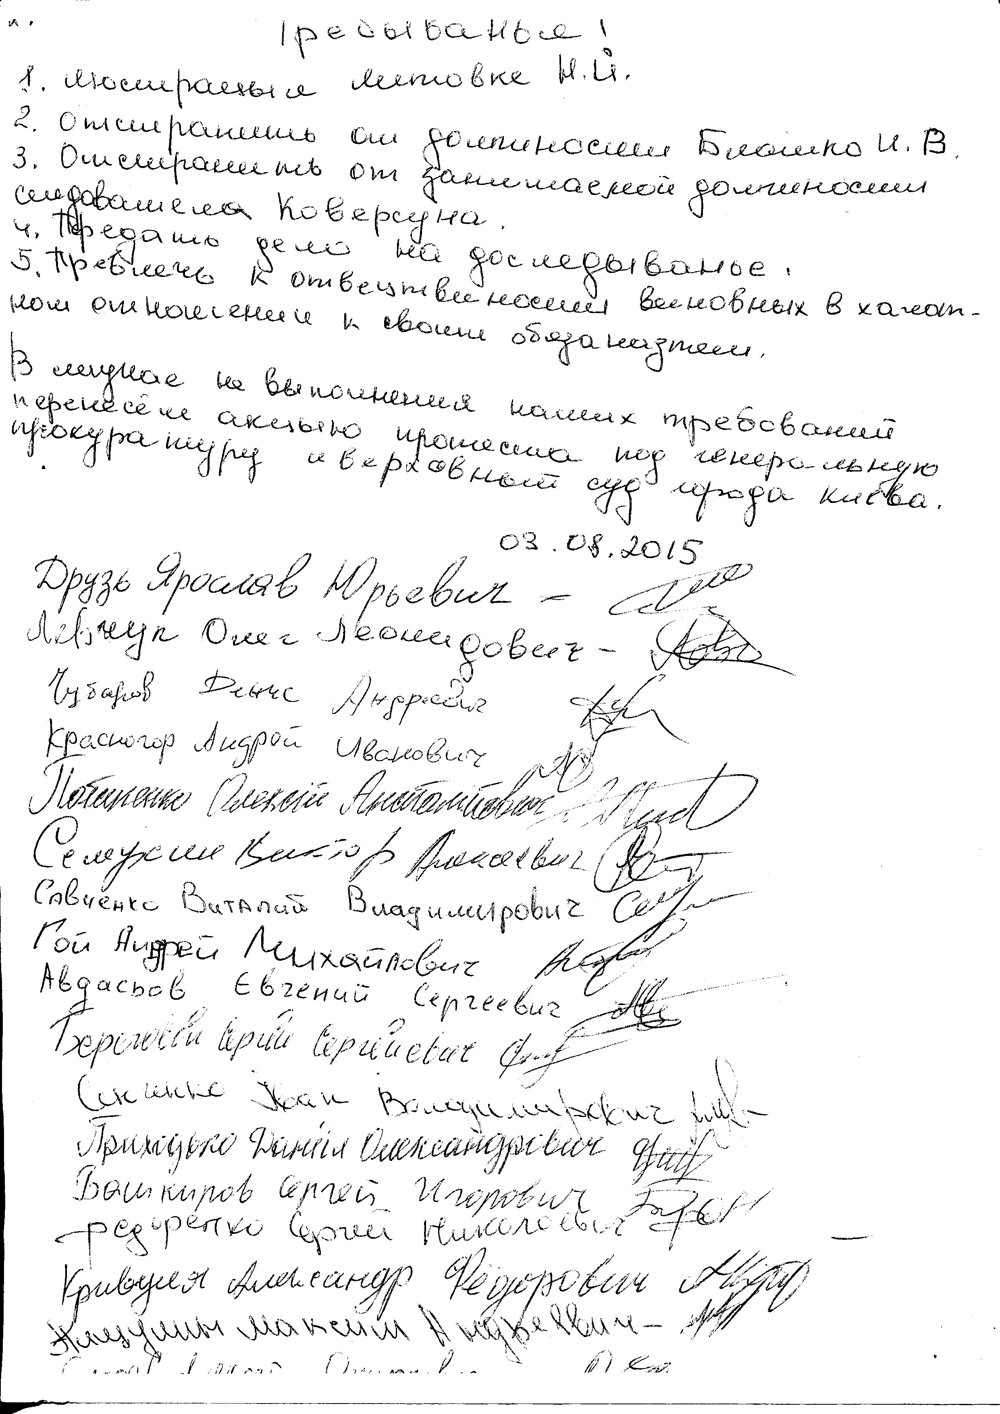 Требыванья!
1. Люстрацыя Литовке Н.И.
2. Отстранить от должности Блошко И.В.
3. Отстранить от занимаемой должности
следователя Коверсуна.
4. Предать дело на доследыванье.
5. Превлечь к отвецтвиности виновных в халат-
ном отношении к своим обязаназтем.
В случае не выполнения наших требований
перенесём акцыю протеста под генеральную
прокуратуру и верховный суд города Киева.
03.08.2015
Друзь Ярослав Юрьевич –
Левчук Олег Леонидович –
Чубаров Денис Андреевич
Красногор Андрей Иванович
Потапенко Олексій Анатолійович
Семухин Виктор Алексеевич
Савченко Виталий Владимирович
Гой Андрей Михайлович
Авдасьов Евгений Сергеевич
Береговой Сергій Сергійевич
Иван Володимирович
Приходько Даніїл Олександрович
Башкиров Сергей Игорович
Федоренко Сергей Николаевич
Кривуля Александр Фёдорович
Максим Андреевич –